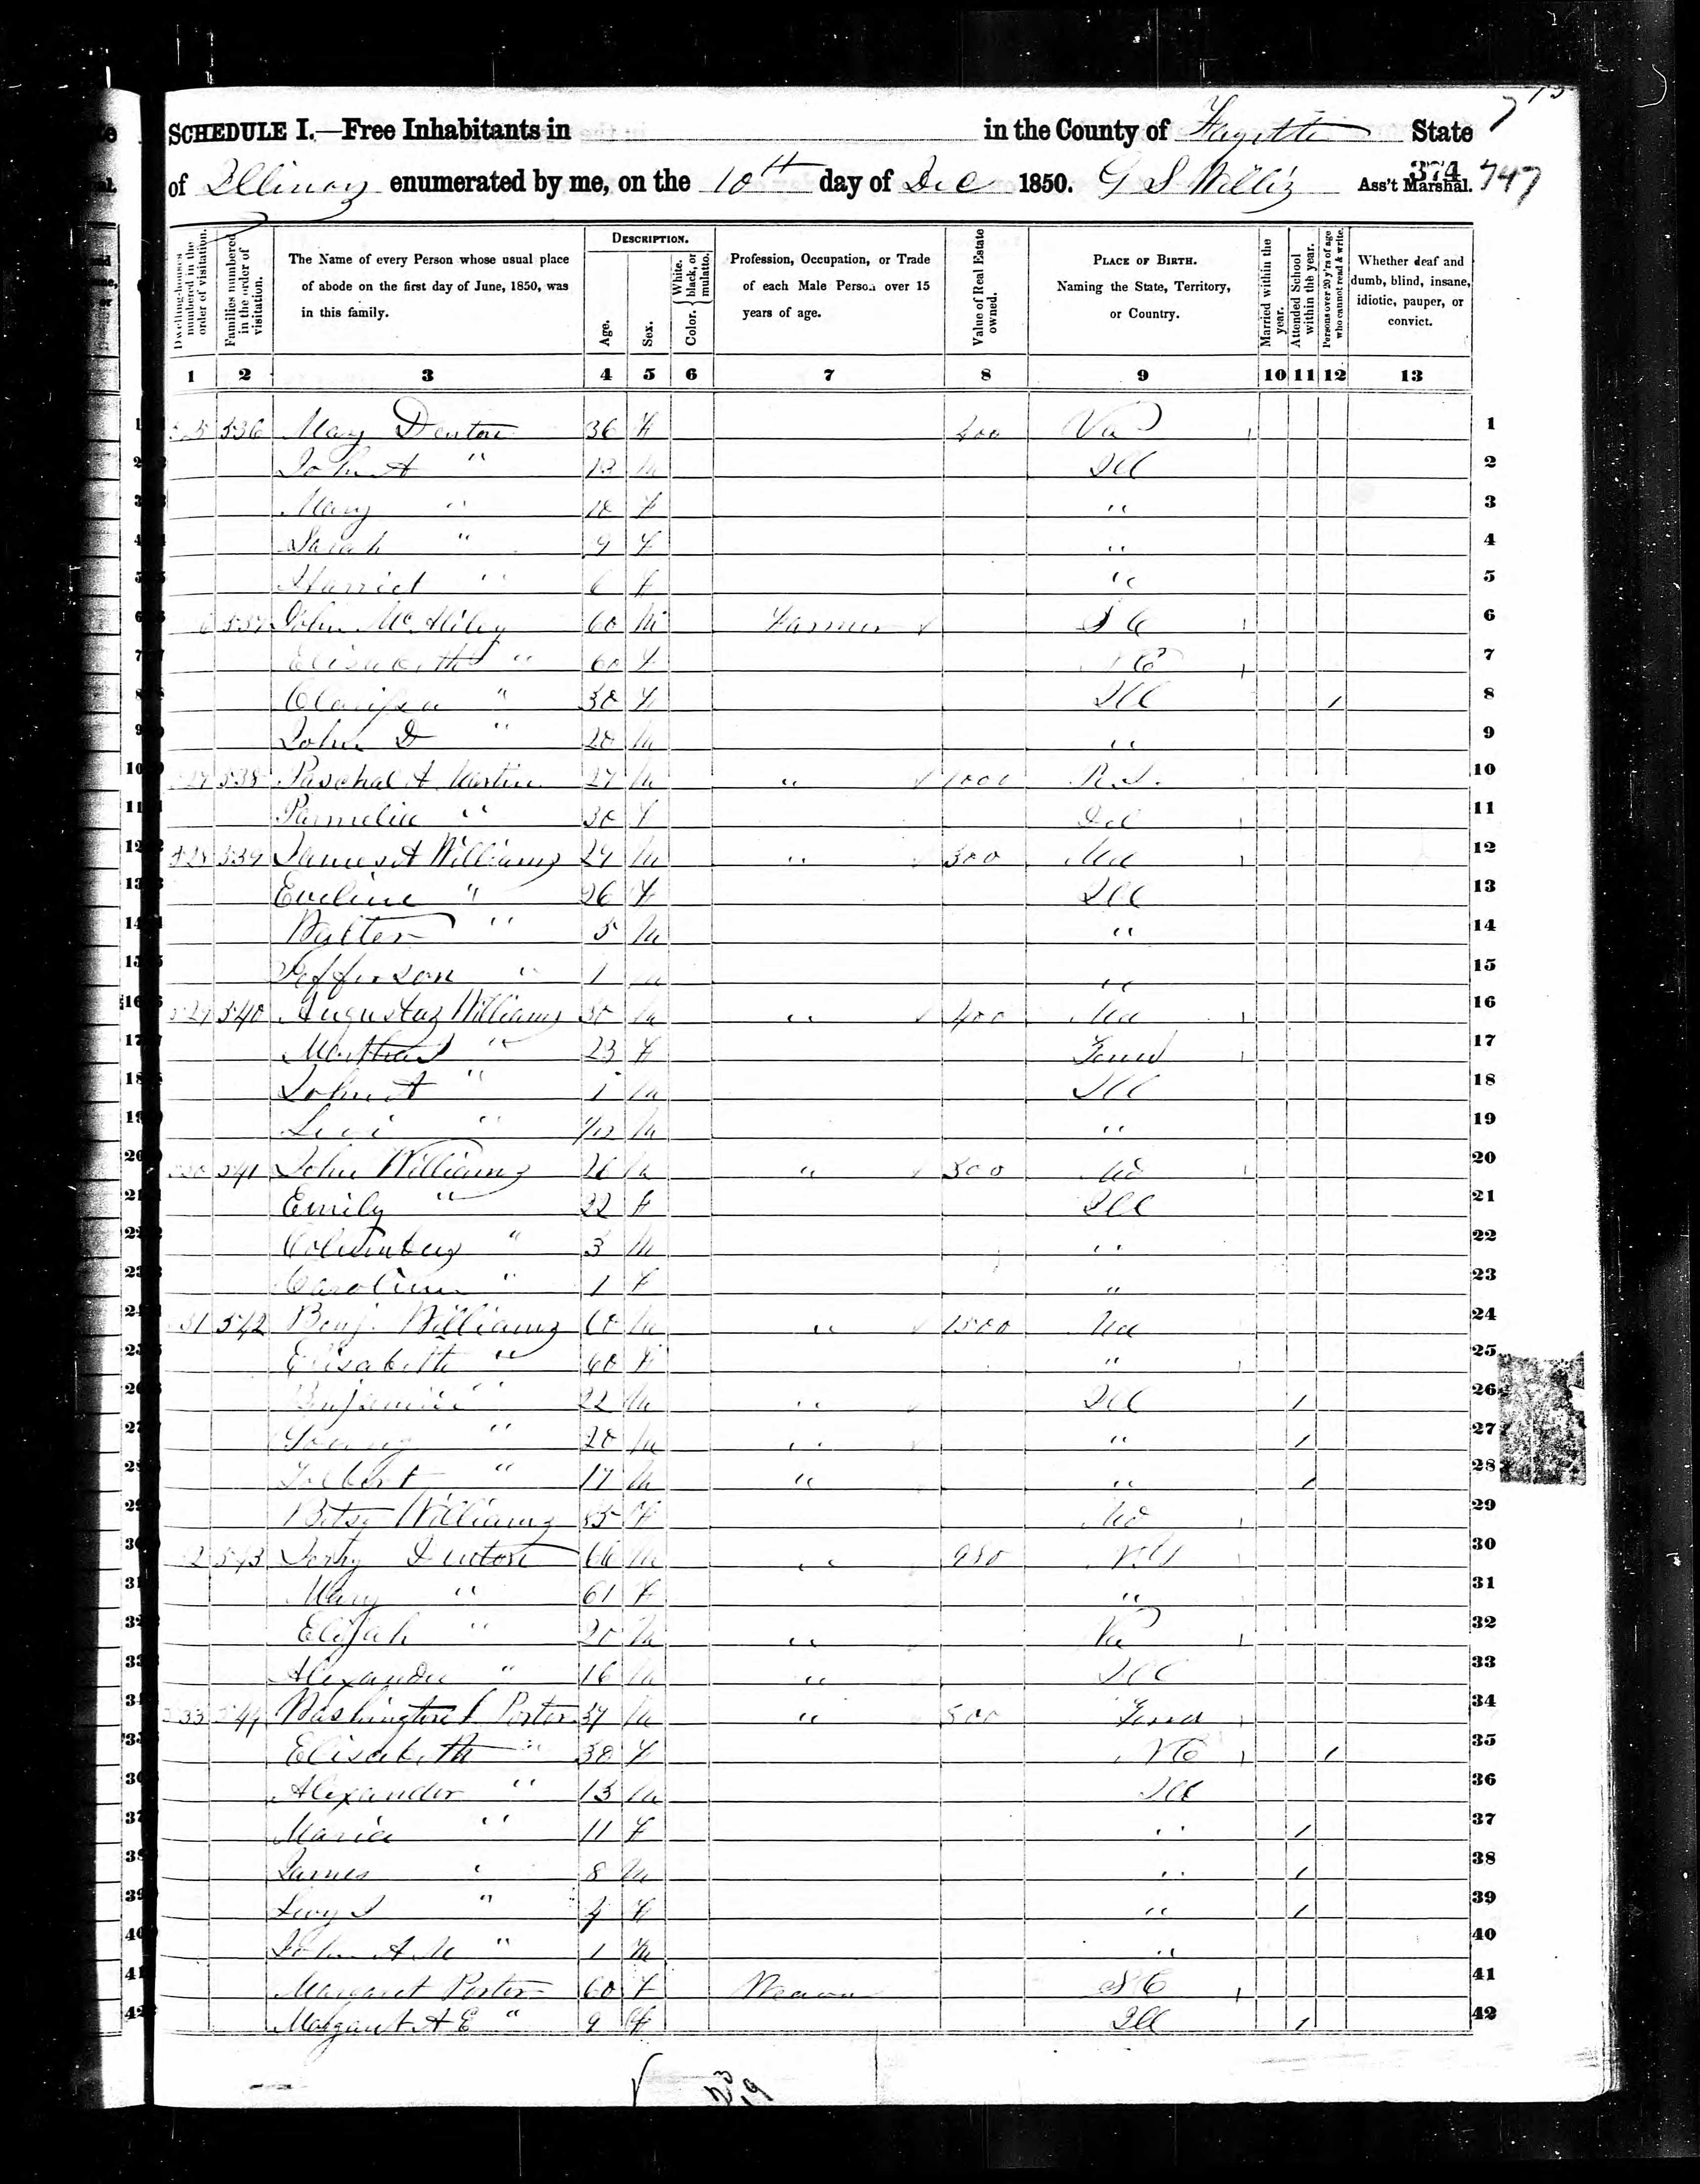 SCHEDULE I.—Free Inhabitants in in the County of Fayette State
of Illinoz enumerated by me, on the 10th day of Dec 1850. G S Williz Ass't Marshal.
374
747
Dwelling-houses numbered in the order of visitation.
Families numbered in the order of visitation.
The Name of every Person whose usual place of abode on the first day of June, 1850, was in this family.
DESCRIPTION.
Age.
Sex.
Color. White, black, or mulatto.
Profession, Occupation, or Trade of each Male Person over 15 years of age.
Value of Real Estate owned.
PLACE OF BIRTH. Naming the State, Territory, or Country.
Married within the year.
Attended School within the year.
Persons over 20 y'rs of age who cannot read & write.
Whether deaf and dumb, blind, insane, idiotic, pauper, or convict.
1 2 3 4 5 6 7 8 9 10 11 12 13
1 536 Mary Denton 36 F Va 1
2 John A " M Ill 2
3 Mary " F " 3
4 Sarah " 9 F " 4
5 Harriet " 6 F " 5
6 537 John Mc 60 M Farmer S C 6
7 Elisabeth " 60 F 7
8 Clarissa " 30 F Ill / 8
9 John D " 20 M " 9
10 538 Paschal A Martin 27 M " 1000 10
11 Pamelia " 30 F 11
12 528 539 James A Williamz 29 M " 300 12
13 Eveline " 26 F Ill 13
14 Walter " 5 M " 14
15 Jefferson " 1 M " 15
16 529 540 Augustuz Williamz M " 400 16
17 Martha " 23 F Tenn 17
18 John A " 1 M Ill 18
19 Levi " M " 19
20 541 John Williamz 26 M " 300 20
21 Emily " 22 F Ill 21
22 Columbuz " 3 M " 22
23 Caroline " 1 F " 23
24 31 542 Benj. Williamz 60 M " 1500 24
25 Elisabeth " 60 F " 25
26 Benjamin " 22 M " Ill / 26
27 Young " 20 M " " / 27
28 " 17 M " " / 28
29 Betsy Williamz 85 F 29
30 543 Denton 66 M " 30
31 Mary " 61 F " 31
32 Elijah " 20 M " Va 32
33 Alexander " 16 M " Ill 33
34 533 544 Washington Porter 37 M " 500 Tenn 34
35 Elisabeth " 38 F N C / 35
36 Alexander " 13 M Ill 36
37 Maria " 11 F " / 37
38 James " 8 M " / 38
39 " F " / 39
40 John A M " 1 M " 40
41 Margaret Porter 60 F S C 41
42 Margaret A E " 9 F Ill / 42